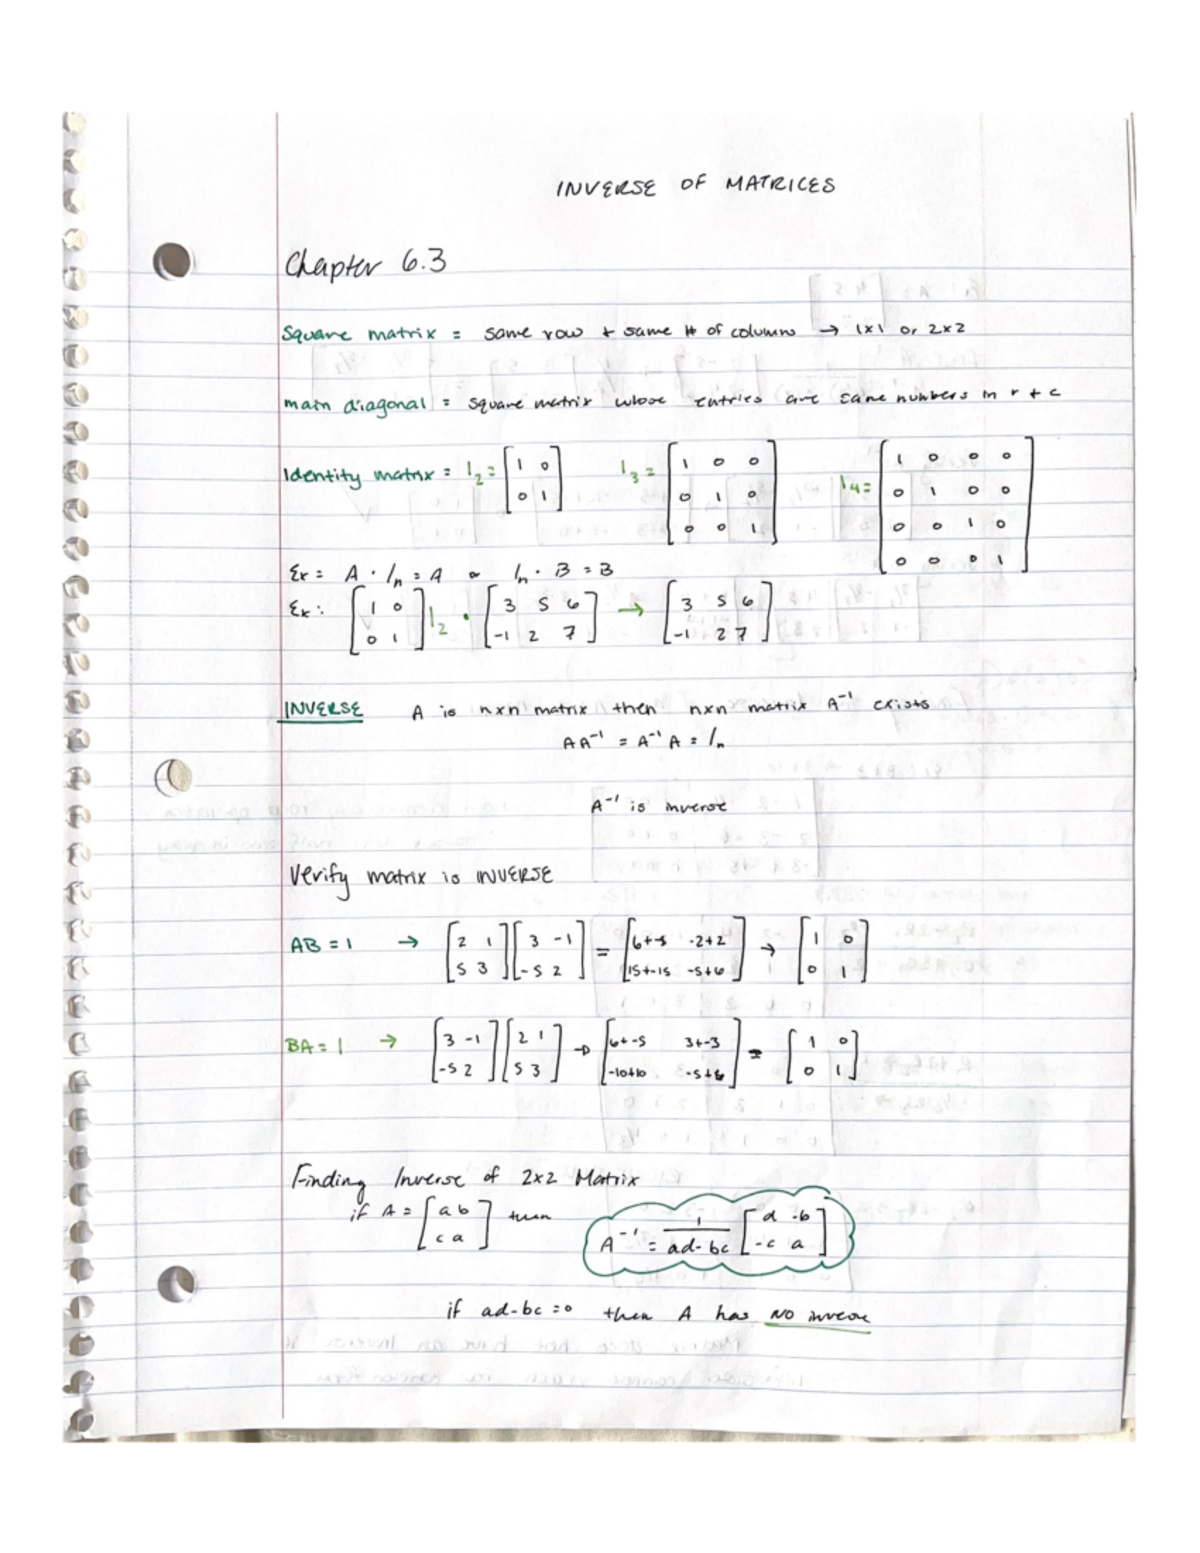 INVERSE OF MATRICES
Chapter 6.3
Square matrix = same row + same # of columns → 1x1 or 2x2
main diagonal = square matrix whose entries are same numbers in r + c
Identity matrix = I2 = [1 0 I3 = [1 0 0 I4 = [1 0 0 0
0 1] 0 1 0 0 1 0 0
0 0 1] 0 0 1 0
0 0 0 1]
Ex = A · In = A or In · B = B
Ex: [1 0 I2 · [3 5 6 → [3 5 6
0 1] -1 2 7] -1 2 7]
INVERSE A is nxn matrix then nxn matrix A⁻¹ exists
AA⁻¹ = A⁻¹A = In
A⁻¹ is inverse
Verify matrix is INVERSE
AB = 1 → [2 1 [3 -1 = [6+-5 -2+2 → [1 0
5 3] -5 2] 15+-15 -5+6] 0 1]
BA = 1 → [3 -1 [2 1 → [6+-5 3+-3 = [1 0
-5 2] 5 3] -10+10 -5+6] 0 1]
Finding Inverse of 2x2 Matrix
if A = [a b then A⁻¹ = 1 [d -b
c a] ad-bc -c a]
if ad-bc = 0 then A has NO inverse